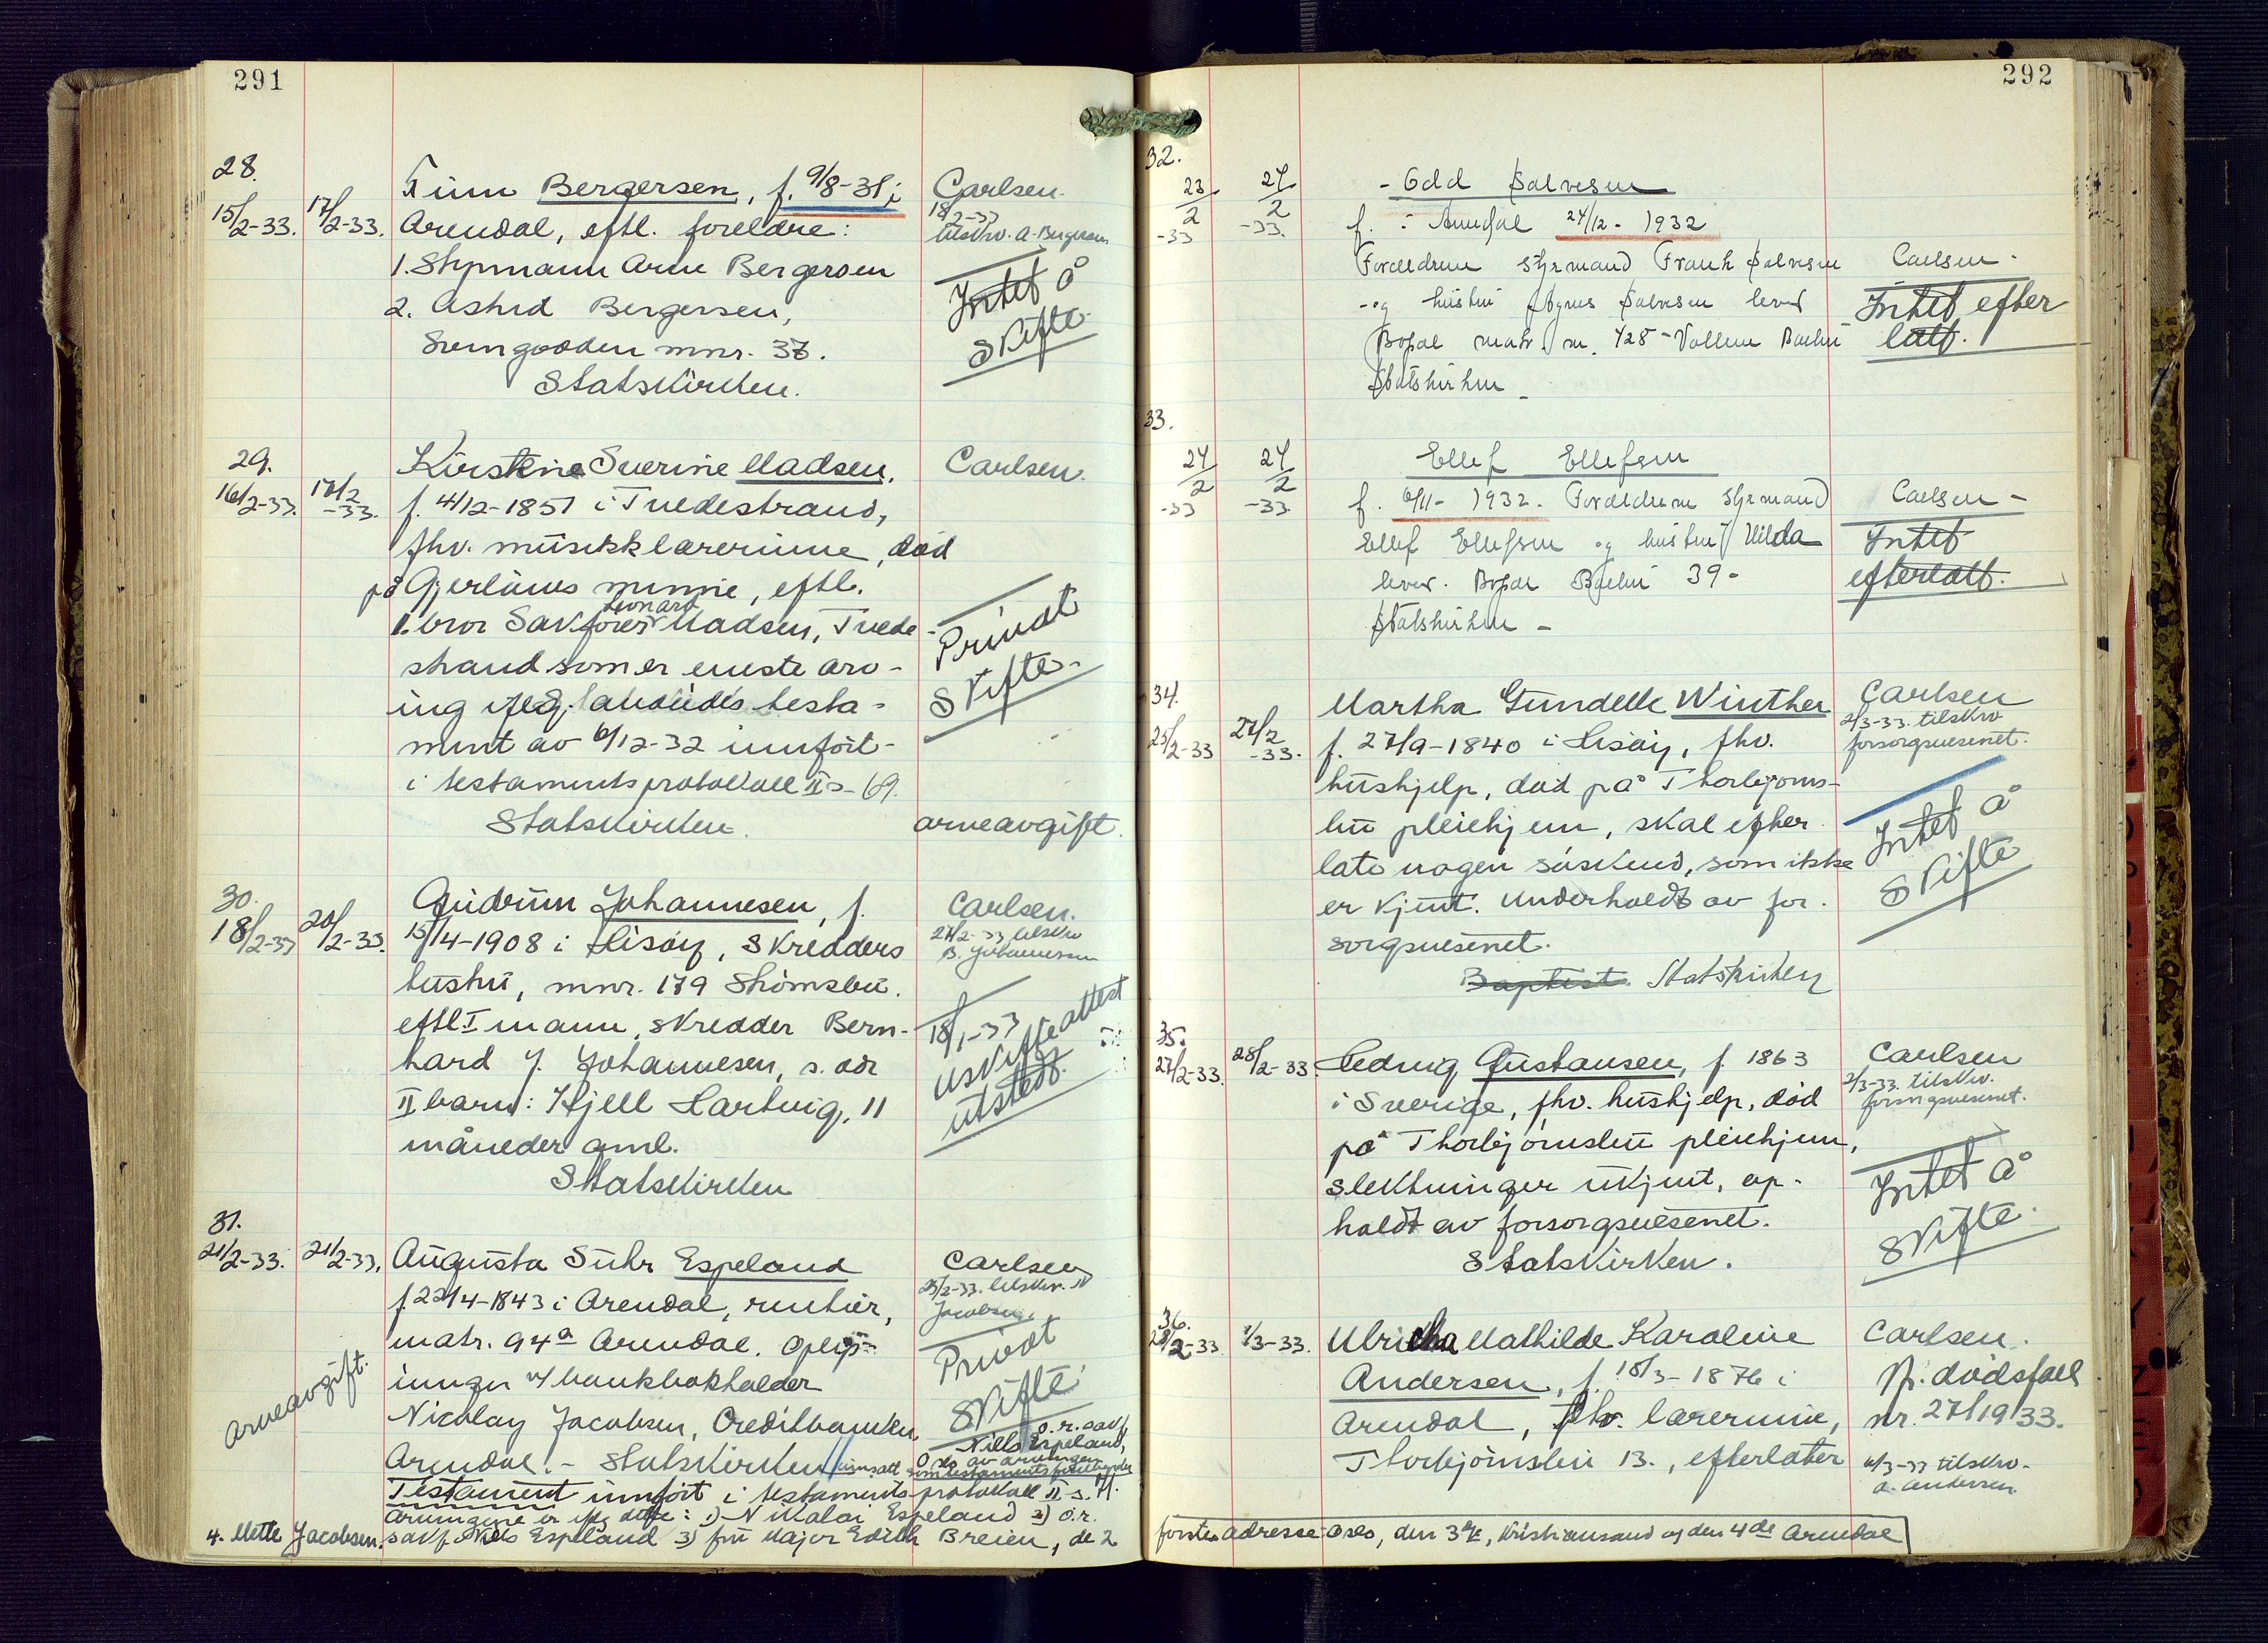 291
28.
15/2-33. 17/2-33.
Finn Bergersen, f. 9/8-31 i
Arendal, eftl. foreldre:
1. Styrmann Arne Bergersen
2. Astrid Bergersen,
mnr. 37.
Statskirken.
Carlsen.
18/2-33
tilskrv. A. Bergersen
Intet å
skifte.
29.
16/2-33. 17/2-33.
Kirstine Severine Madsen,
f. 4/12-1851 i Tvedestrand,
fhv. musikklærerinne, død
på Gjerløws minne, eftl.
1. bror Sakfører Leonard Madsen, Tvede-
strand som er eneste arv-
ing ifølg. avdødes testa-
ment av 6/12-32 innført
i testamentsprotokoll II s. 69.
Statskirken.
Carlsen.
Privat
skifte.
arveavgift.
30.
18/2-33 20/2-33.
Gudrun Johannesen, f.
15/4-1908 i Hisøy, skredders
hustru, mnr. 179 Strømsbu.
eftl I mann, skredder Bern-
hard J. Johannesen, s. adr
II barn: Kjell Hartvig, 11
måneder gml.
Statskirken
Carlsen.
27/2-33 tilskrv
B. Johannesen
18/1-33
uskifteattest
utstedt.
31.
21/2-33. 21/2-33.
Augusta Suhr Espeland
f. 22/4-1843 i Arendal, rentier,
matr. 94a Arendal. Oplys-
ninger v/ bankbokholder
Nicolay Jacobsen, Creditbanken,
Arendal. - Statskirken
Testament innført i testaments-protokoll II s. 71.
Arvingene er iflg dette: 1) Nikolai Espeland 2) o.r.
sakf. Niels Espeland 3) fru Major Edith Breien, de 2
4. Mette Jacobsen.
Carlsen
25/2-33. tilskrv. N
Jacobsen.
Privat
skifte.
o.r. sakf
Niels Espeland,
Oslo av arvingene
som testamentsfuldbyrder
Arveavgift.
292
32.
23/2-33 24/2-33.
- Odd Salvesen
f. i Arendal 24/12 - 1932
Forældrene styrmand Frank Salvesen
- og hustru Agnes Salvesen lever
Bopæl matr. nr. 428 - Vollene Barbu
Statskirken -
Carlsen -
Intet efter
latt.
33.
24/2-33 24/2-33
Ellef Ellefsen
f. 6/11 - 1932. Forældrene styrmand
Ellef Ellefsen og hustru Hilda
lever. Bopæl Barbu 39 -
Statskirken -
Carlsen -
Intet
efterlatt.
34.
25/2-33 27/2-33.
Martha Gundelle Winther
f. 27/9-1840 i Hisøy, fhv.
hushjelp, død på Thorbjørns-
bu pleiehjem, skal efter-
late nogen søskend, som ikke
er kjent. Underholdt av for-
sorgsvesenet.
Baptist. Statskirken
Carlsen
2/3-33. tilskrv
forsorgsvesenet.
Intet å
skifte
35.
27/2-33. 28/2-33.
Hedvig Gustavsen, f. 1863
i Sverige, fhv. hushjelp, død
på Thorbjørnsbu pleiehjem,
slektninger ukjent, op-
holdt av forsorgsvesenet.
Statskirken.
Carlsen
2/3-33. tilskrv.
forsorgsvesenet.
Intet å
skifte.
36.
28/2-33 1/3-33.
Ulricha Mathilde Karoline
Andersen, f. 18/3-1876 i
Arendal, fhv. lærerinne,
Thorbjørnsbu 13., efterlater
Carlsen.
dødsfall
nr. 27/1933.
4/3-33 tilskrv.
A. Andersen.
første adresse Oslo, den 3de, Kristiansand og den 4de Arendal